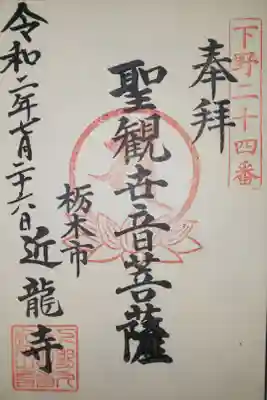 下野二十四番
奉拝
聖観世音菩薩
栃木市
近龍寺
令和二年七月二十六日